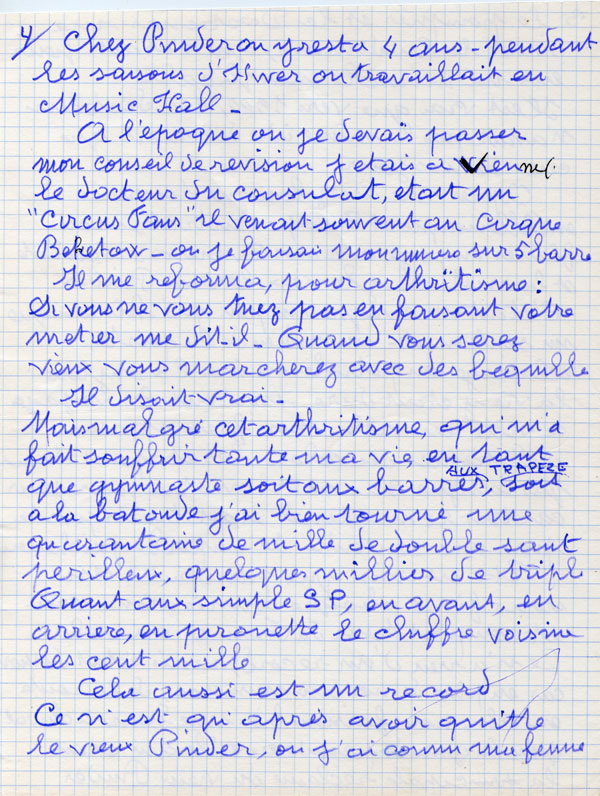 4/ Chez Pinder on y resta 4 ans - pendant
les saisons d'Hiver on travaillait en
Music Hall -
A l'époque ou je devais passer
mon conseil de revision j etais a Vienne
le docteur du consulat, etait un
"Circus Fans" il venait souvent au Cirque
Beketow - ou je faisais mon numero sur 5 barre
Il me reforma, pour arthritisme :
Si vous ne vous tuez pas en faisant votre
metier me dit-il - Quand vous serez
vieux vous marcherez avec des bequille
Il disait vrai -
Mais malgré cet arthritisme, qui m'a
fait souffrir toute ma vie, en tant
AUX TRAPEZE
que gymnaste soit aux barres, soit
a la batoude j'ai bien tourné une
quarantaine de mille de double saut
perilleux, quelques milliers de triple
Quant aux simple S P, en avant, en
arriere, en pirouette le chiffre voisine
les cent mille
Cela aussi est un record
Ce n'est qu'après avoir quitté
le vieux Pinder, ou j'ai connu ma femme